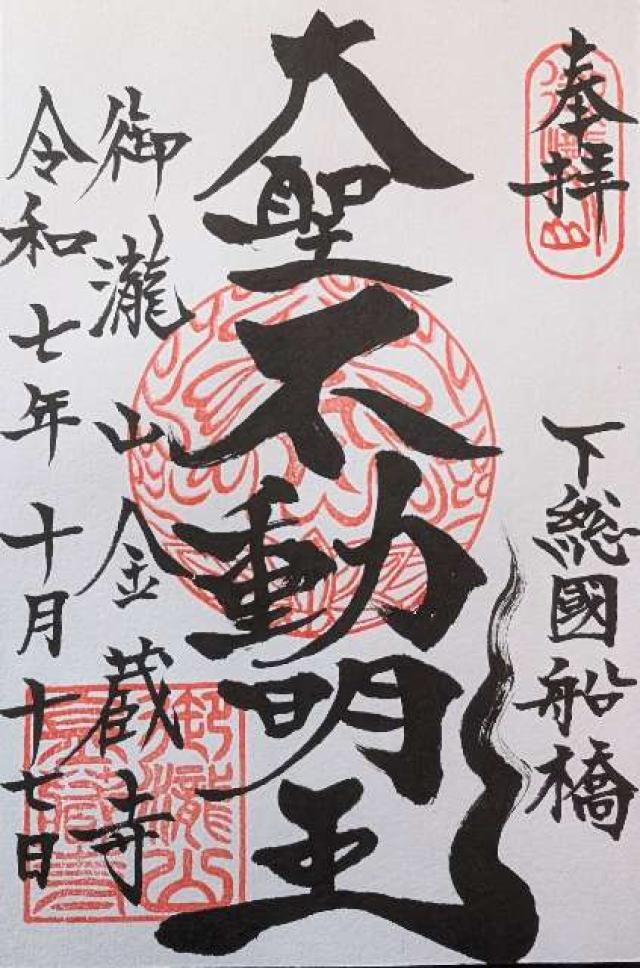 奉拝
下総國船橋
大聖不動明王
御瀧山金蔵寺
令和七年十月十七日
御瀧山
金藏寺